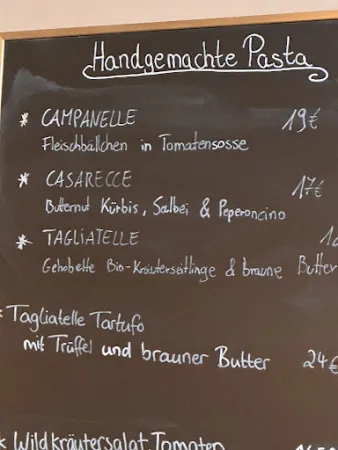 Handgemachte Pasta
* CAMPANELLE 19€
Fleischbällchen in Tomatensosse
* CASARECCE 17€
Butternut Kürbis, Salbei & Peperoncino
* TAGLIATELLE
Gehobelte Bio-Kräuterseitlinge & braune Butter
* Tagliatelle Tartufo
mit Trüffel und brauner Butter 24€
* Wildkräutersalat, Tomaten